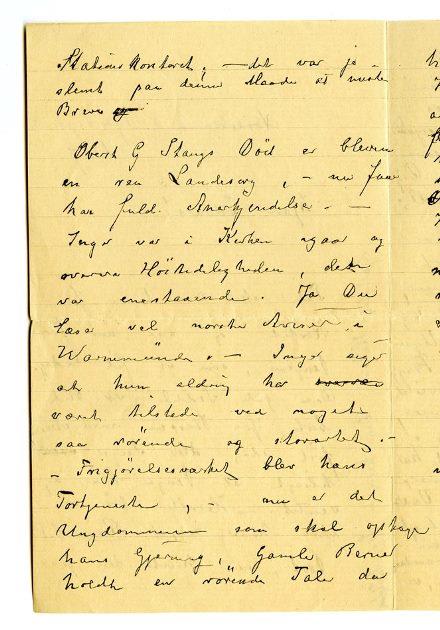 Stationskontoret, — det var jo
slemt paa denne Maade at miste
Breve og
Oberst G Stangs Död er bleven
en ren Landesorg, — nu faar
han fuld Anerkjendelse. —
Inger var i Kirken igaar og
overvar Höitideligheden, den
var enestaaende. Ja Du
læser vel norske Aviser i
Warnemünde. — Inger siger
at hun aldrig har
været tilstede ved noget
saa rörende og storartet. —
— Frigjörelsesværket blev hans
Fortjeneste, nu er det
Ungdommen som skal optage
hans Gjerning, Gamle Berner
holdt en rörende Tale da